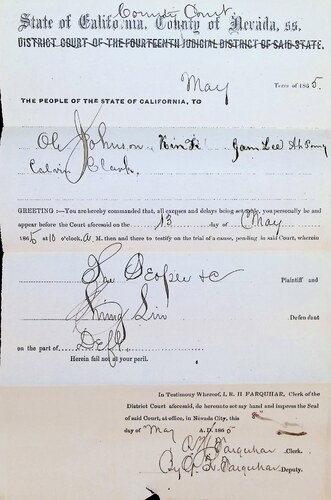 County Court.
State of California, County of Nevada, ss.
DISTRICT COURT OF THE FOURTEENTH JUDICIAL DISTRICT OF SAID STATE.
May Term of 1865.
THE PEOPLE OF THE STATE OF CALIFORNIA, TO
Ole Johnson Kin Ki Jam Lee Ah Pong
Calvin Clark.
GREETING:—You are hereby commanded, that, all excuses and delays being set aside, you personally be and
appear before the Court aforesaid on the 13 day of May
1865 at 10 o'clock, A. M. then and there to testify on the trial of a cause, pending in said Court, wherein
The People &c Plaintiff and
Lin Defendant
on the part of Deft.
Herein fail not at your peril.
In Testimony Whereof, I, R H FARQUHAR, Clerk of the
District Court aforesaid, do hereunto set my hand and impress the Seal
of said Court, at office, in Nevada City, this
day of May A. D. 1865
Farquhar Clerk.
By Farquhar Deputy.